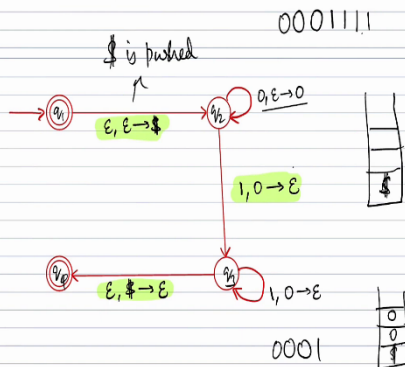 0001111
$ is pushed
q1
q2
0, ε→0
ε, ε→$
$
1, 0→ε
q3
ε, $→ε
1, 0→ε
0
0
$
0001